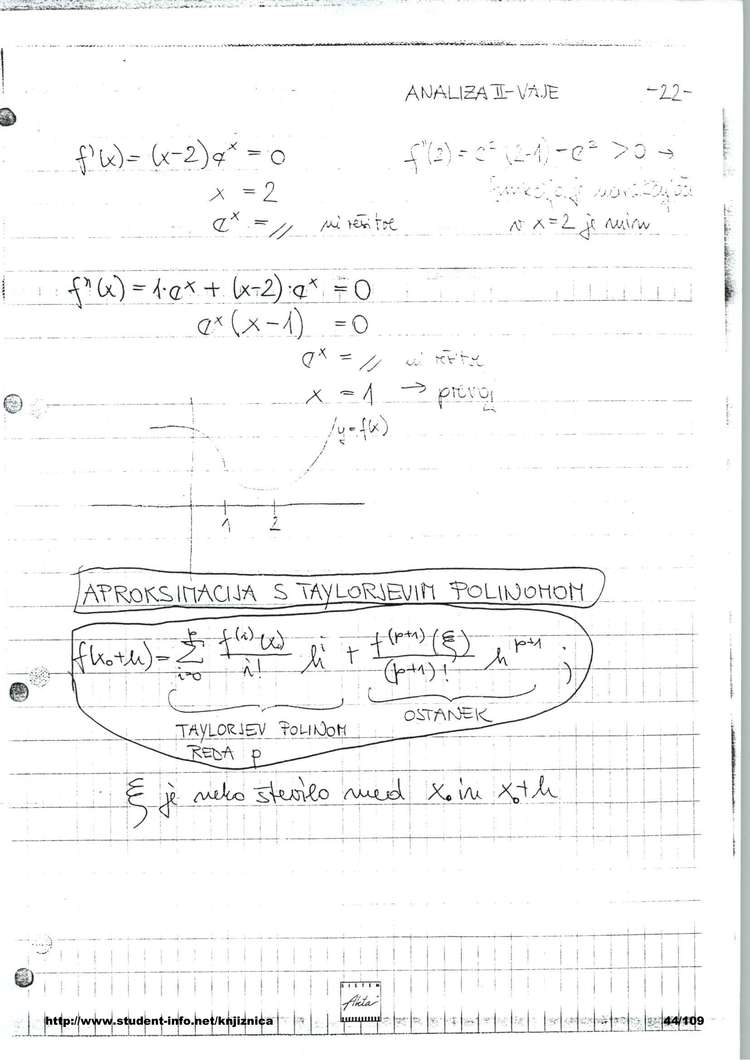 ANALIZA II-VAJE -22-
f'(x) = (x-2)e^x = 0
x = 2
e^x = // ni rešitve
f''(2) = e² (2-1) = e² > 0 →
funkcija je
v x=2 je min
f''(x) = 1·e^x + (x-2)·e^x = 0
e^x (x-1) = 0
e^x = // ni rešitve
x = 1 → prevoj
y=f(x)
1 2
APROKSIMACIJA S TAYLORJEVIM POLINOMOM
f(x₀+h) = ∑_{i=0}^{p} f^(i)(x₀)/i! h^i + f^(p+1)(ξ)/(p+1)! h^{p+1} ;
TAYLORJEV POLINOM
REDA p
OSTANEK
ξ je neko število med x₀ in x₀+h
SISTEM
Akta
http://www.student-info.net/knjiznica 44/109